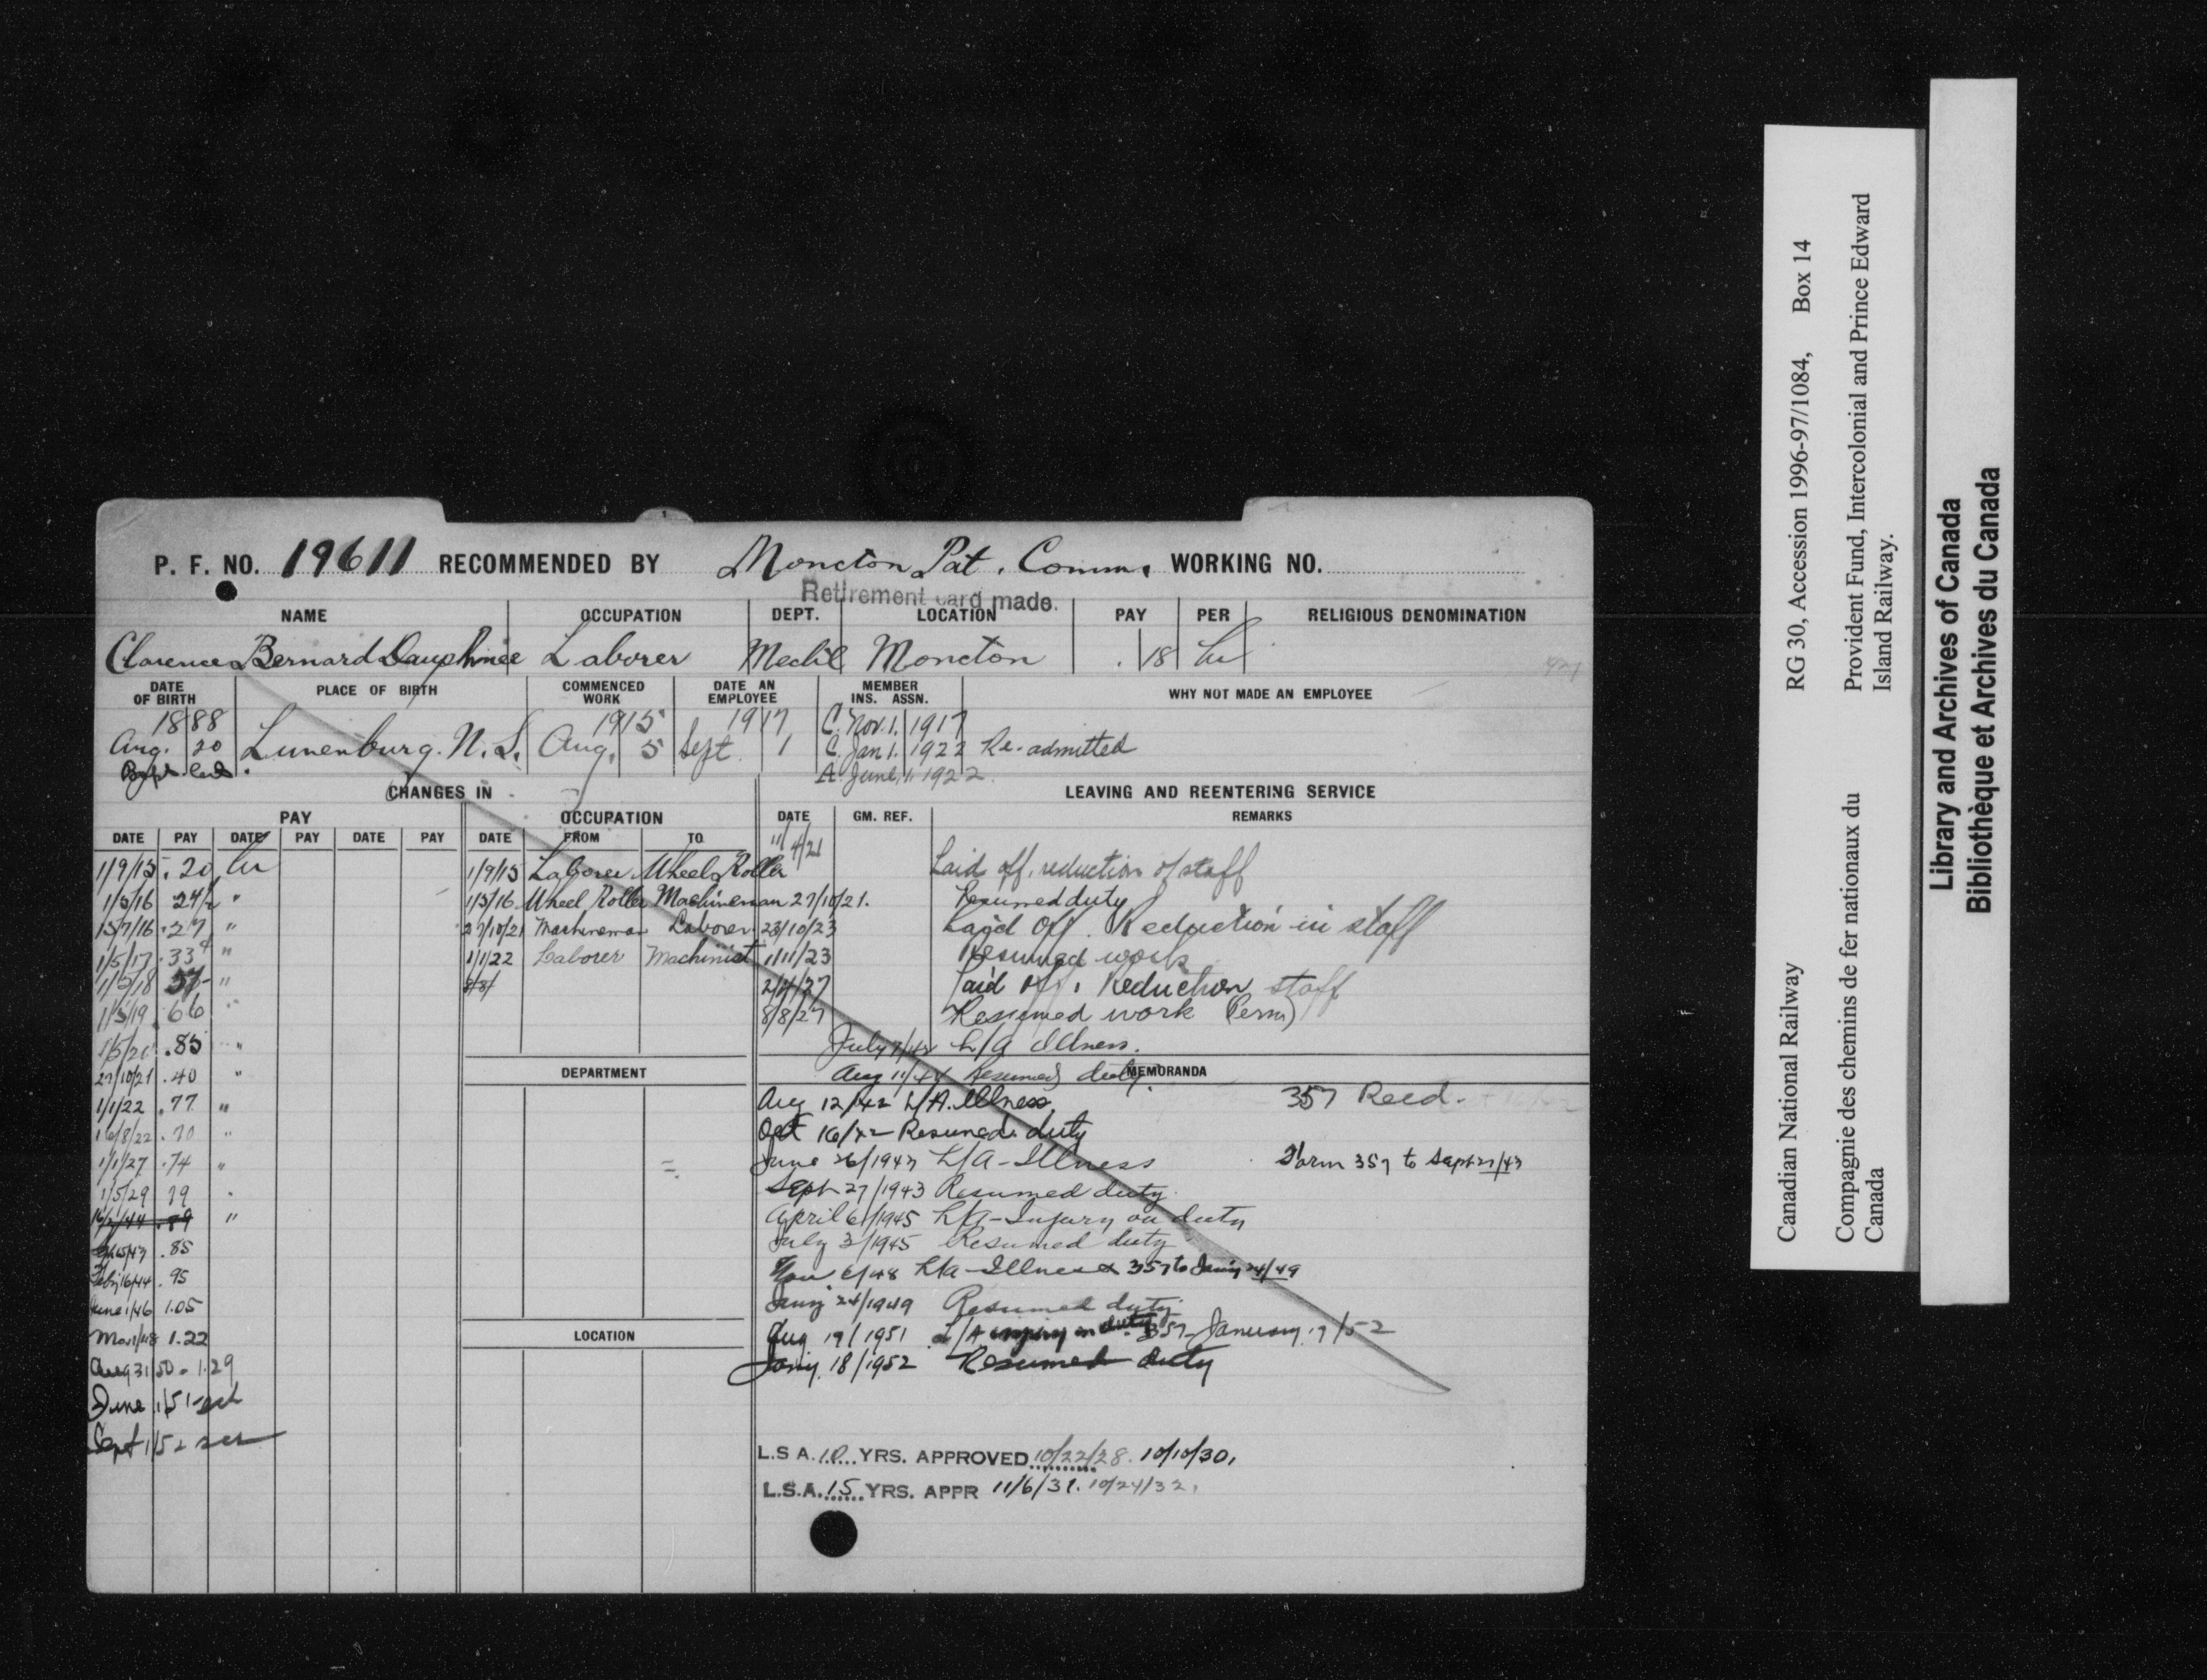 P. F. NO. 19611 RECOMMENDED BY Moncton Pat. Comm. WORKING NO.
Retirement card made.
NAME OCCUPATION DEPT. LOCATION PAY PER RELIGIOUS DENOMINATION
Clarence Bernard Dauphinee Laborer Mech'l Moncton .18 hr
DATE OF BIRTH PLACE OF BIRTH COMMENCED WORK DATE AN EMPLOYEE MEMBER INS. ASSN. WHY NOT MADE AN EMPLOYEE
1888 1915 1917 C. Nov. 1. 1917
Aug. 20 Lunenburg. N. S. Aug. 5 Sept. 1 C. Jan 1. 1922 Re-admitted
A. June 1. 1922.
CHANGES IN
PAY
DATE PAY DATE PAY DATE PAY
1/9/15 .20 hr
1/5/16 24½ "
15/7/16 .27 "
1/5/17 .33 "
1/5/18 "
1/5/19 .66 "
1/5/20 .85 "
27/10/21 .40 "
1/1/22 .77 "
16/8/22 .70 "
1/1/27 .74 "
1/5/29 79
16/2/44 .89 "
.85
Feby 16/44 .95
June 1/46 1.05
Mar 1/48 1.22
Aug 31/50 - 1.29
June 1/51
Sept 1/52
OCCUPATION
DATE FROM TO
1/9/15 Laborer Wheel Roller
1/5/16 Wheel Roller Machineman
27/10/21 Machineman Laborer
1/1/22 Laborer Machinist
8/8/
DEPARTMENT
LOCATION
LEAVING AND REENTERING SERVICE
DATE GM. REF. REMARKS
11/4/21 Laid off, reduction of staff
27/10/21. Resumed duty
23/10/23 Laid off. Reduction in staff
1/11/23 Resumed work
Laid off. Reduction staff
8/8/27 Resumed work (Perm)
L/A Illness.
Resumed duty.
MEMORANDA
Aug 12/42 L/A. Illness 357 Recd.
Oct 16/42 Resumed duty
June 26/1943 L/A - Illness Form 357 to Sept 27/43
Sept 27/1943 Resumed duty.
April 6/1945 L/A - Injury on duty
July 3/1945 Resumed duty
Nov. 6/48 L/A - Illness 357 to Jany 24/49
Jany 24/1949 Resumed duty
Aug 19/1951 L/A injury on duty. 357 - January 17/52
Jany. 18/1952 Resumed duty
L.S A. 10 YRS. APPROVED 10/22/28. 10/10/30.
L.S.A. 15 YRS. APPR 11/6/31. 10/24/32.
Canadian National Railway RG 30, Accession 1996-97/1084, Box 14
Compagnie des chemins de fer nationaux du Canada
Provident Fund, Intercolonial and Prince Edward Island Railway.
Library and Archives of Canada
Bibliothèque et Archives du Canada